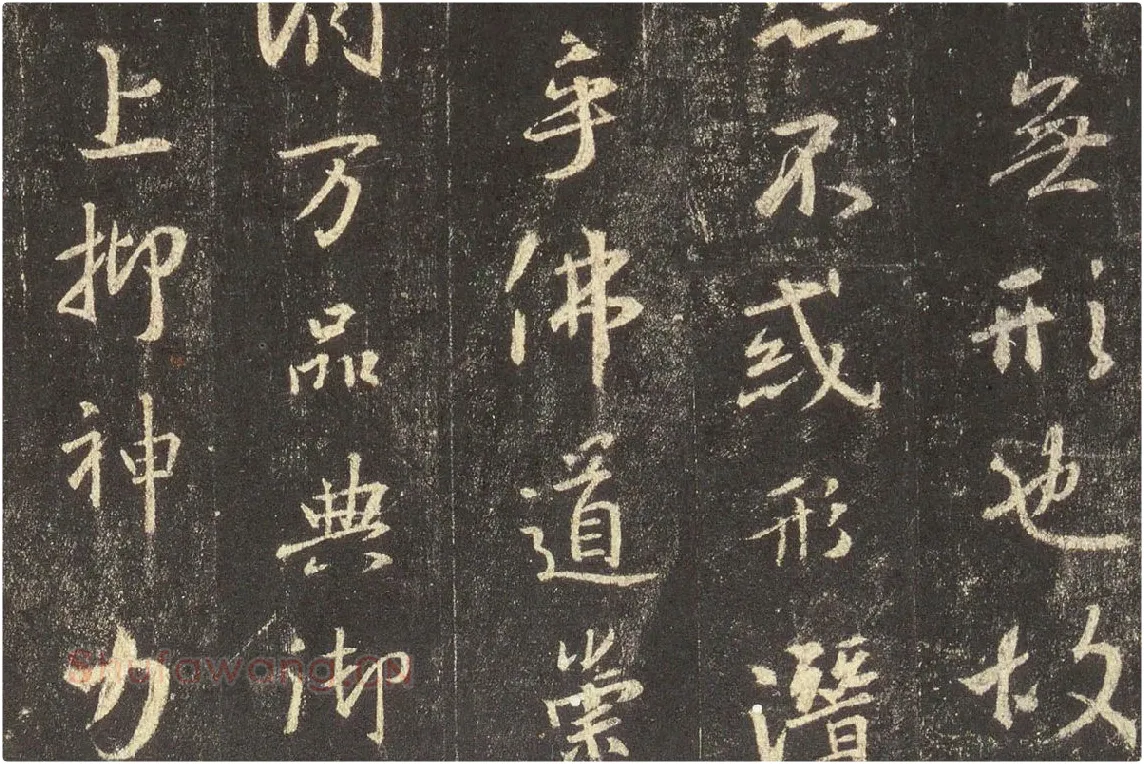 無形也故
不惑形潛
乎佛道崇
万品典御
上抑神力
Shufawang.cn